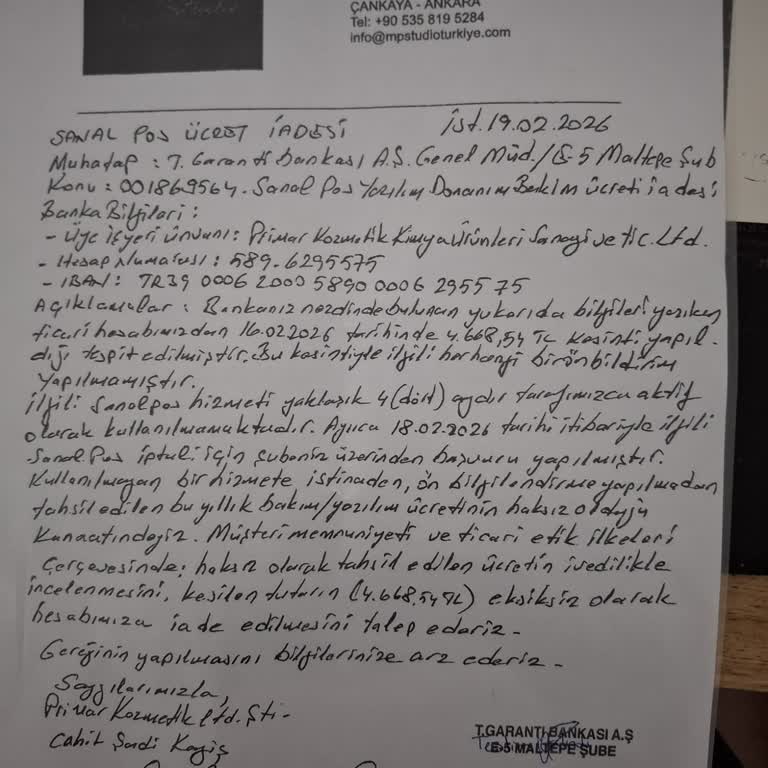 ÇANKAYA - ANKARA
Tel: +90 535 819 5284
info@mpstudioturkiye.com
SANAL POS ÜCRET İADESİ
İst.19.02.2026
Muhatap : T. Garanti bankası A.Ş. Genel Müd./E-5 Maltepe Şub
Konu : 001869564. Sanal Pos Yazılım Donanım Bakım ücreti iadesi
Banka Bilgileri :
- Üye işyeri ünvanı : Primar Kozmetik Kimya Ürünleri Sanayi ve tic. Ltd.
- Hesap Numarası : 589-6295575
- IBAN : TR39 0006 2000 5890 0006 2955 75
Açıklamalar : Bankanız nezdinde bulunan yukarıda bilgileri yazılan
ticari hesabımızdan 16.02.2026 tarihinde 4.668,54 TL kesinti yapıl-
dığı tespit edilmiştir. Bu kesintiyle ilgili herhangi bir ön bildirim
yapılmamıştır.
İlgili Sanalpos hizmeti yaklaşık 4 (dört) aydır tarafımızca aktif
olarak kullanılmamaktadır. Ayrıca 18.02.2026 tarihi itibariyle ilgili
Sanal Pos iptali için şubeniz üzerinden başvuru yapılmıştır.
Kullanılmayan bir hizmete istinaden, ön bilgilendirme yapılmadan
tahsil edilen bu yıllık bakım/yazılım ücretinin haksız olduğu
Kanaatindeyiz. Müşteri memnuniyeti ve ticari etik ilkeleri
Çerçevesinde; haksız olarak tahsil edilen ücretin ivedilikle
incelenmesini, kesilen tutarın (4.668,54 TL) eksiksiz olarak
hesabımıza iade edilmesini talep ederiz -
Gereğinin yapılmasını bilgilerinize arz ederiz -
Saygılarımızla,
Primar Kozmetik Ltd. Şti -
Cahit Sadi
T.GARANTİ BANKASI A.Ş
E-5 MALTEPE ŞUBE